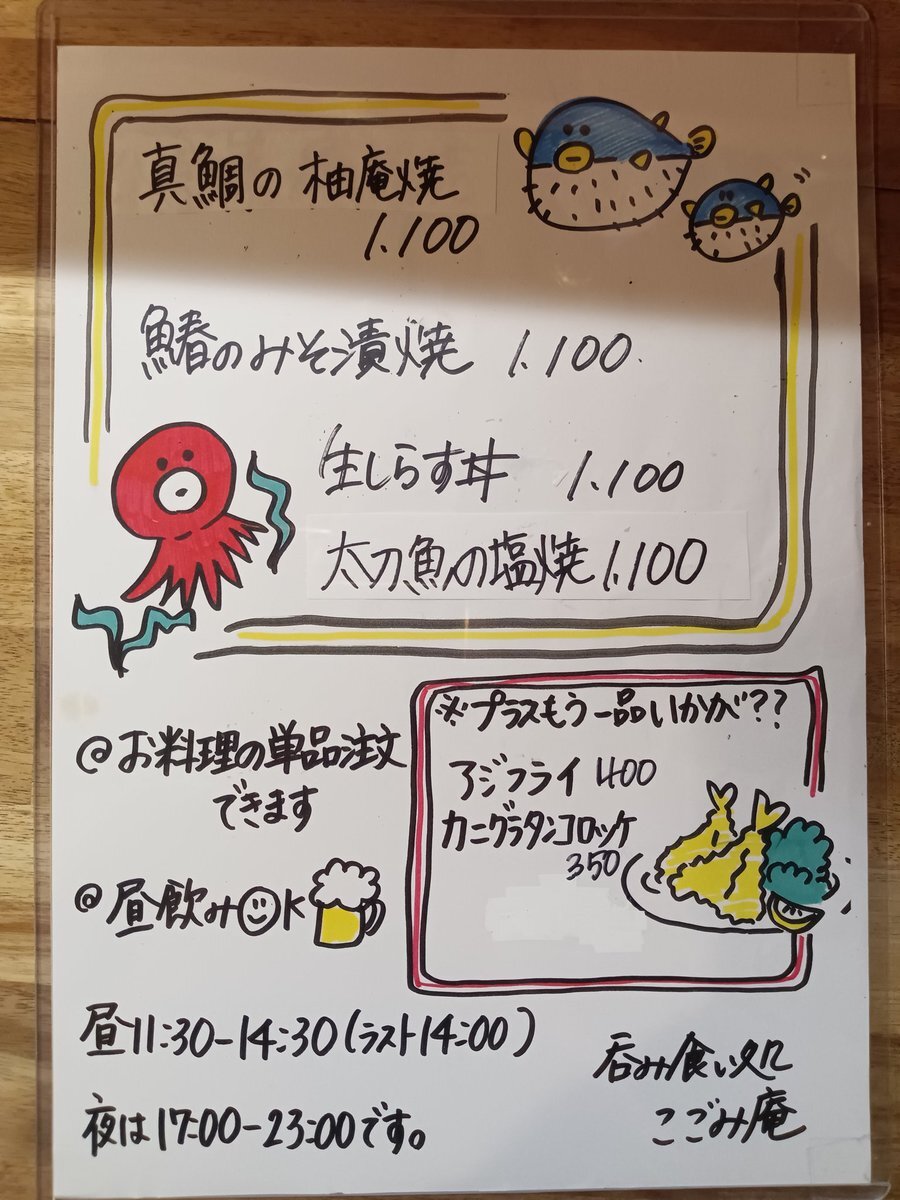 真鯛の柚庵焼
1.100
鰆のみそ漬焼 1.100
生しらす丼 1.100
太刀魚の塩焼 1.100
@お料理の単品注文
できます
@昼飲みOK
※プラスもう一品いかが??
アジフライ 400
カニグラタンコロッケ
350
昼11:30-14:30(ラスト14:00)
夜は17:00-23:00です。
呑み食い処
こごみ庵